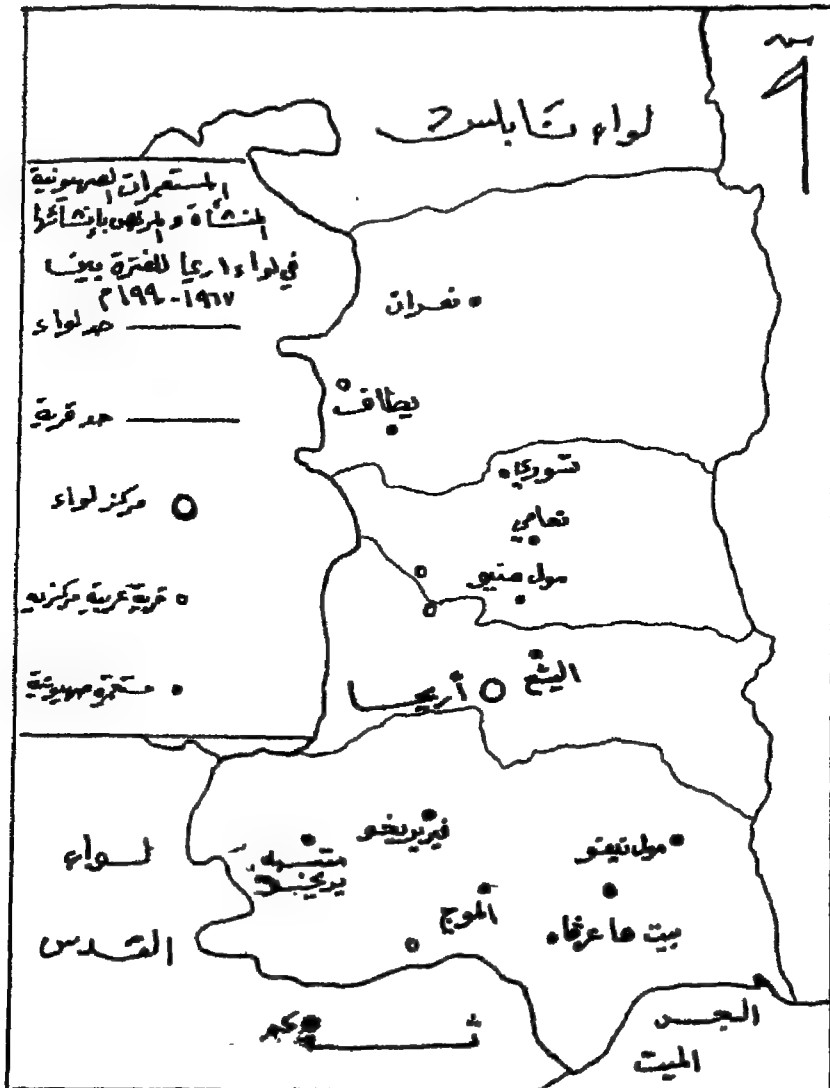 لواء نابلس
المستعمرات الصهيونية
المنشأة والمرخص بإنشائها
في لواء اريحا للفترة بين
١٩٦٧-١٩٩٠م
حد لواء
حد قرية
مركز لواء
قرية عربية مركزية
مستعمرة صهيونية
نعران
يطاف
تسوري
نعامي
مول منيو
اليشع
أريحا
فيريد يريحو
متسبه
يريحو
مول نيفو
الموج
بيت هاعرفاه
لواء
القدس
البحر
الميت
كم